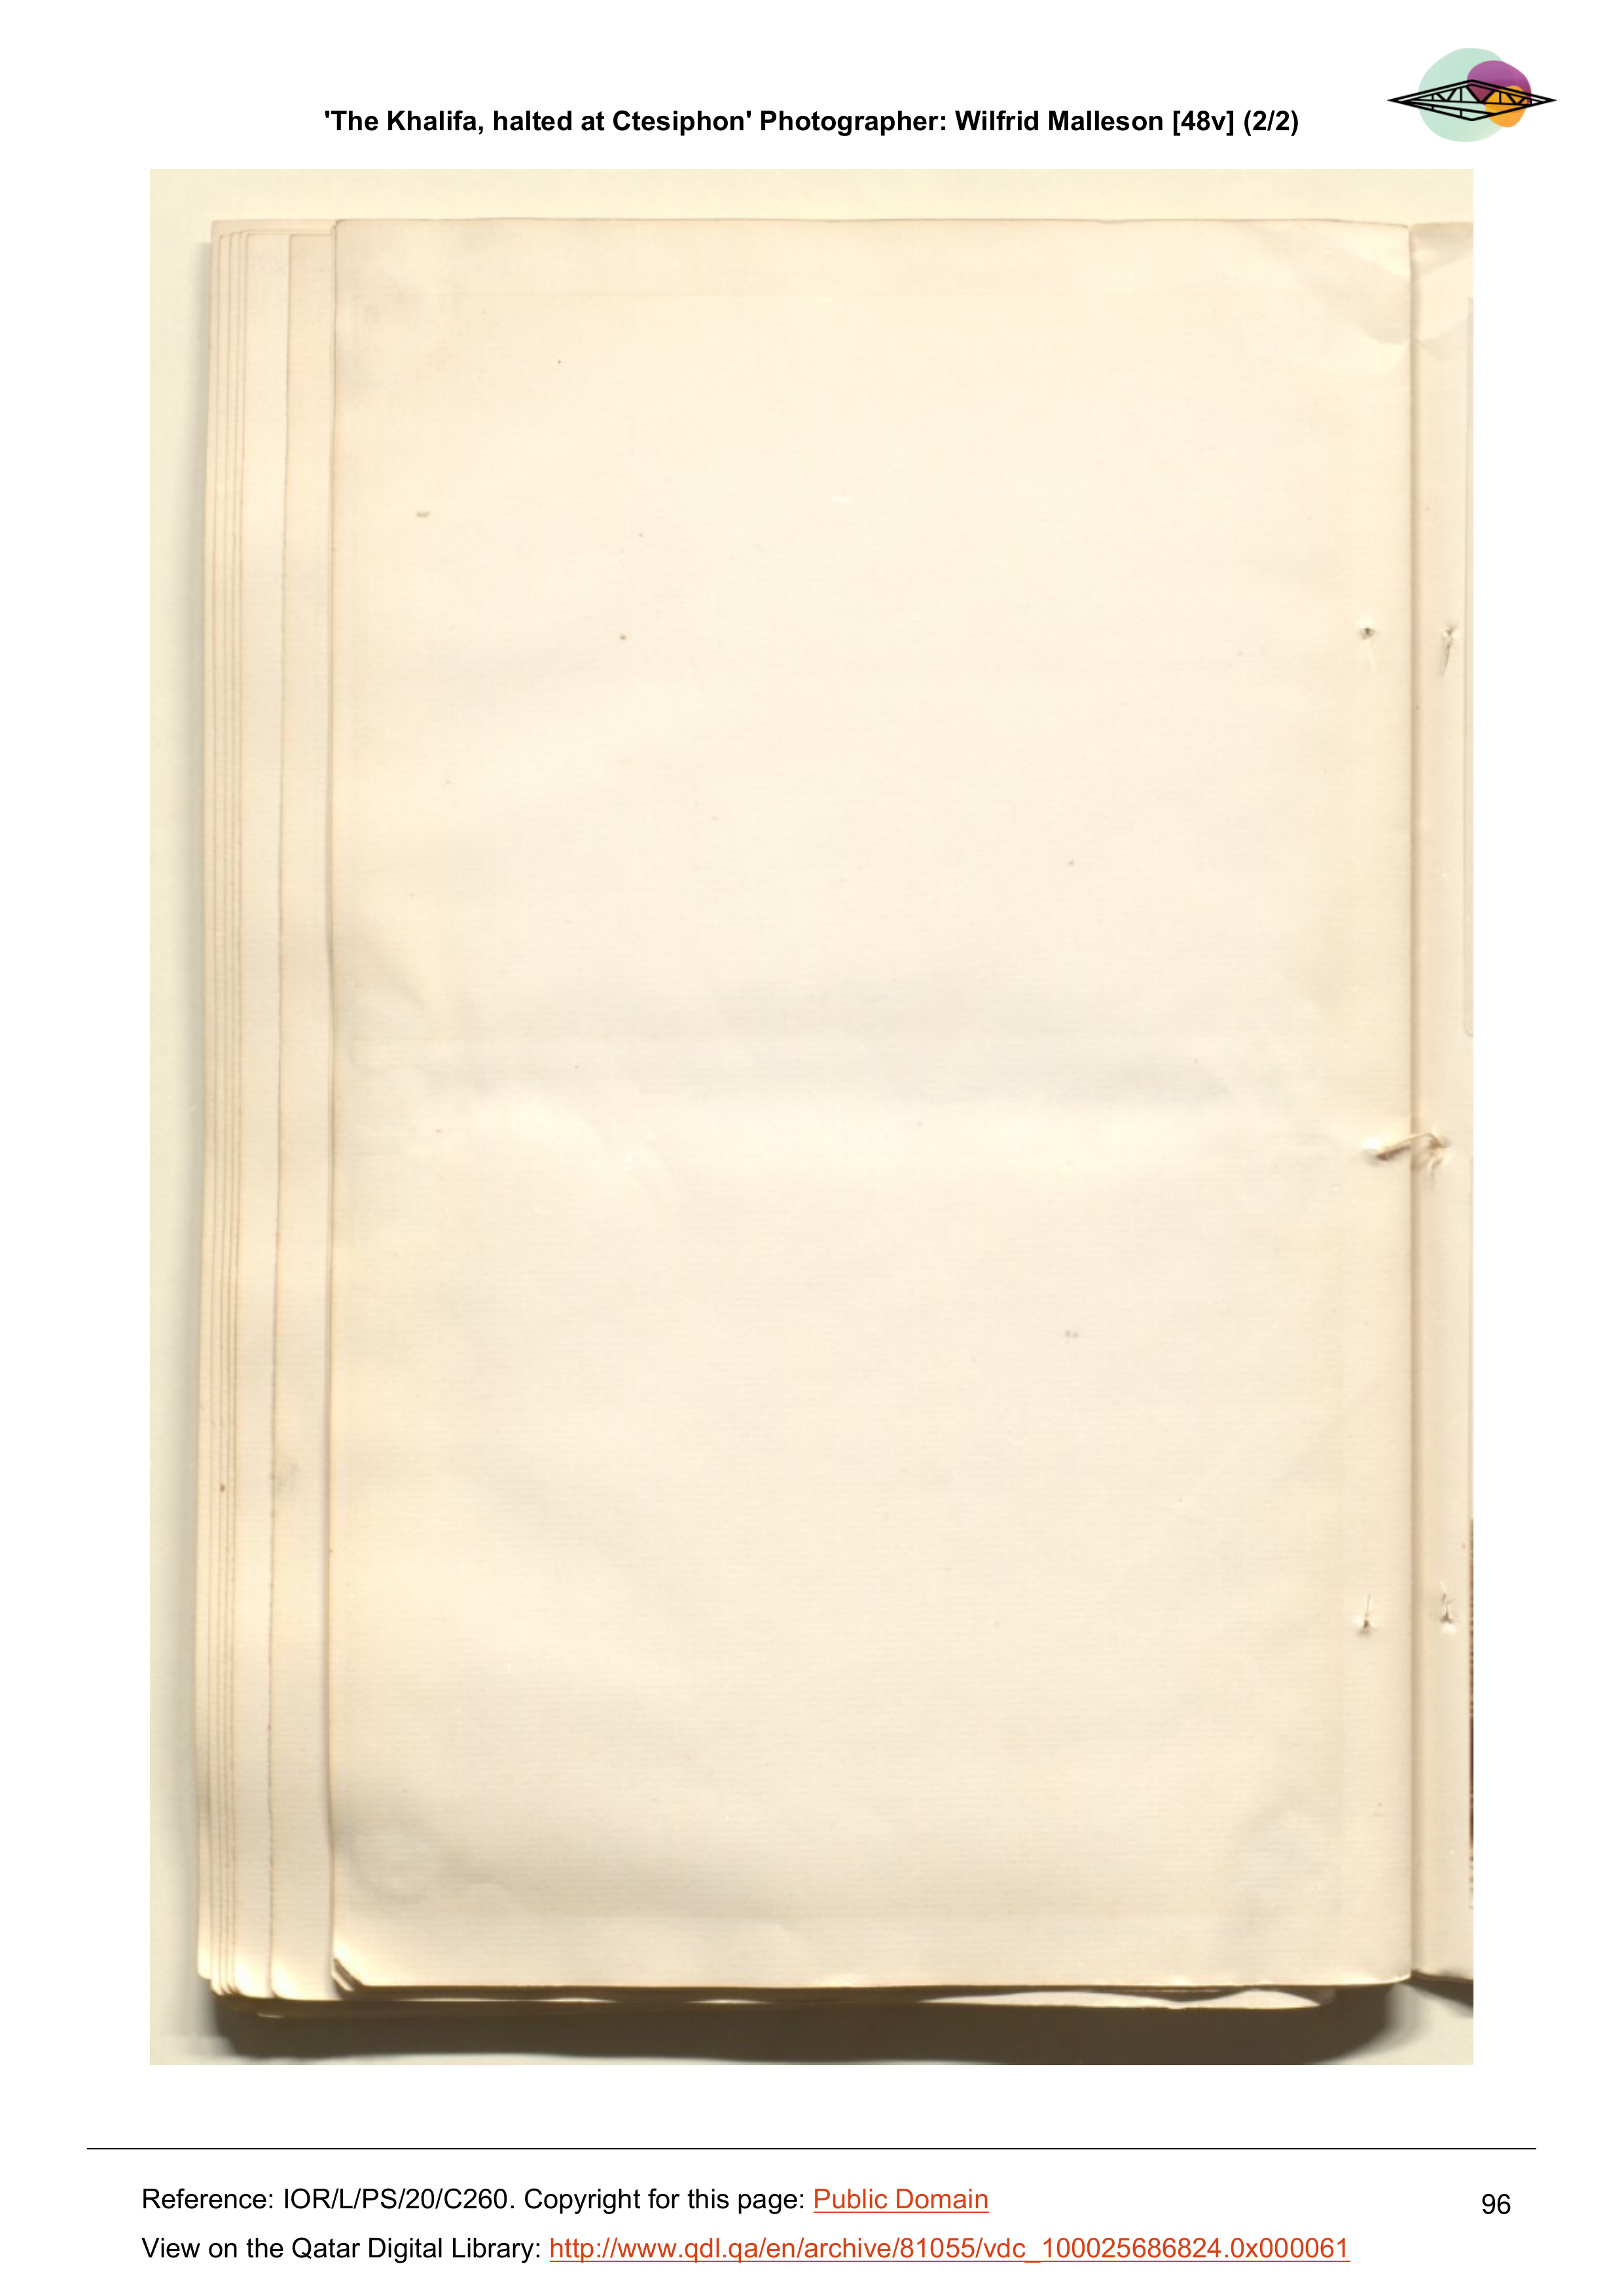 'The Khalifa, halted at Ctesiphon' Photographer: Wilfrid Malleson [48v] (2/2)
Reference: IOR/L/PS/20/C260. Copyright for this page: Public Domain
96
View on the Qatar Digital Library: http://www.qdl.qa/en/archive/81055/vdc_100025686824.0x000061